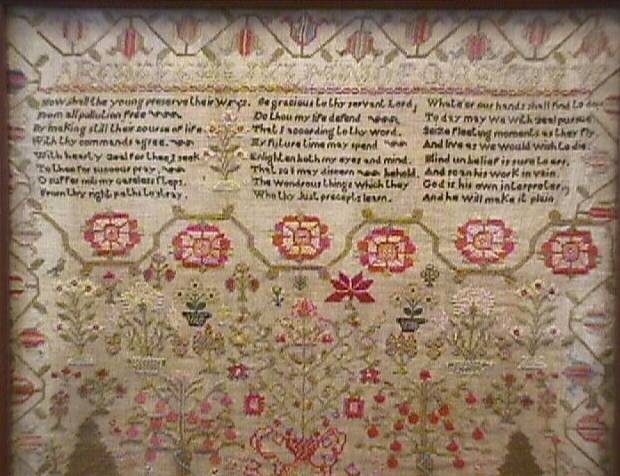 How shall the young preserve their ways.
From all pollution free
By making still their course of life
With thy commands agree.
With hearty zeal for thee I seek
To thee for succour pray
O suffer not my careless steps
From thy right paths to stray.
Be gracious to thy servant Lord,
Do thou my life defend
That I according to thy word.
My future time may spend
Enlighten both my eyes and mind.
That so I may discern behold
The wondrous things which they
Who thy just precepts learn.
What e'er our hands shall find to do
To day may we with zeal pursue
Seize fleeting moments as they fly
And live as we would wish to die.
Blind unbelief is sure to err,
And scan his work in vain.
God is his own interpreter,
And he will make it plain